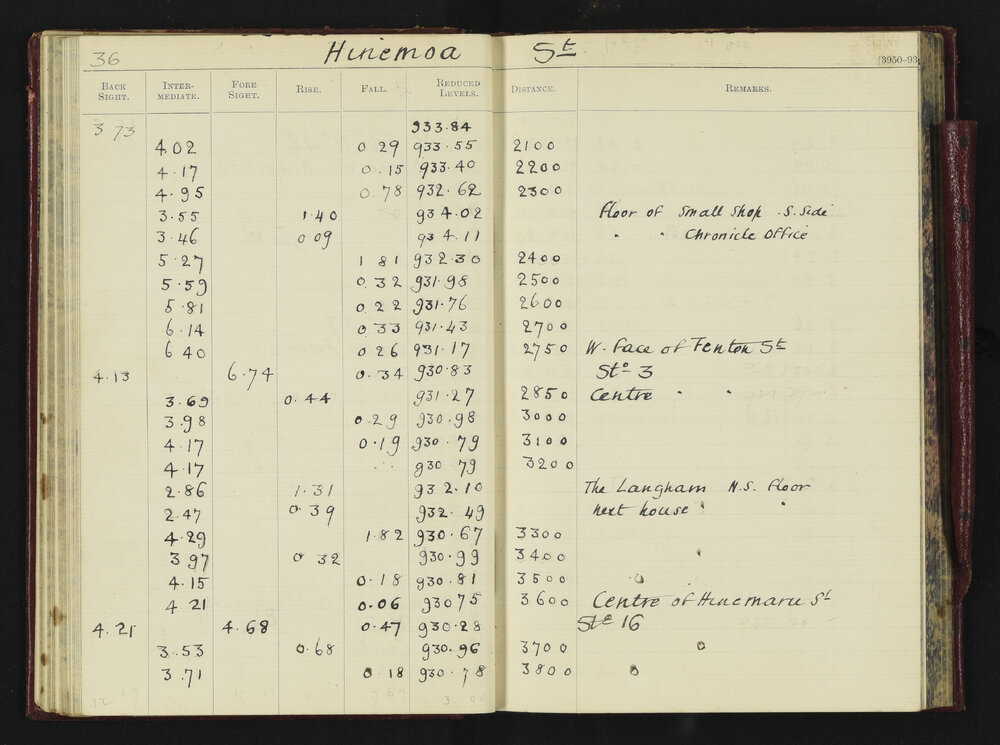 36 Hinemoa St
[3950–93
BACK SIGHT. INTER-MEDIATE. FORE SIGHT. RISE. FALL. REDUCED LEVELS. DISTANCE. REMARKS.
3 73 933·84
4.02 0 29 933·55 2100
4·17 0·15 933·40 2200
4·95 0·78 932·62 2300
3·55 1·40 934·02 Floor of Small Shop S. Side
3·46 0 09 934·11 " " Chronicle Office
5·27 1 81 932·30 2400
5·59 0.32 931·98 2500
5·81 0.22 931·76 2600
6·14 0 33 931·43 2700
6 40 0 26 931·17 2750 W. Face of Fenton St
4.13 6·74 0·34 930·83 Sto 3
3·69 0·44 931·27 2850 Centre " "
3·98 0·29 930·98 3000
4·17 0·19 930·79 3100
4·17 930·79 3200
2·86 1·31 932·10 The Langham N.S. Floor
2·47 0·39 932·49 next house " "
4·29 1·82 930·67 3300
3 97 0·32 930·99 3400
4·15 0·18 930·81 3500
4 21 0·06 93075 3600 Centre of Hinemaru St
4.21 4.68 0·47 930·28 Sto 16
3·53 0·68 930·96 3700
3·71 0·18 930·78 3800